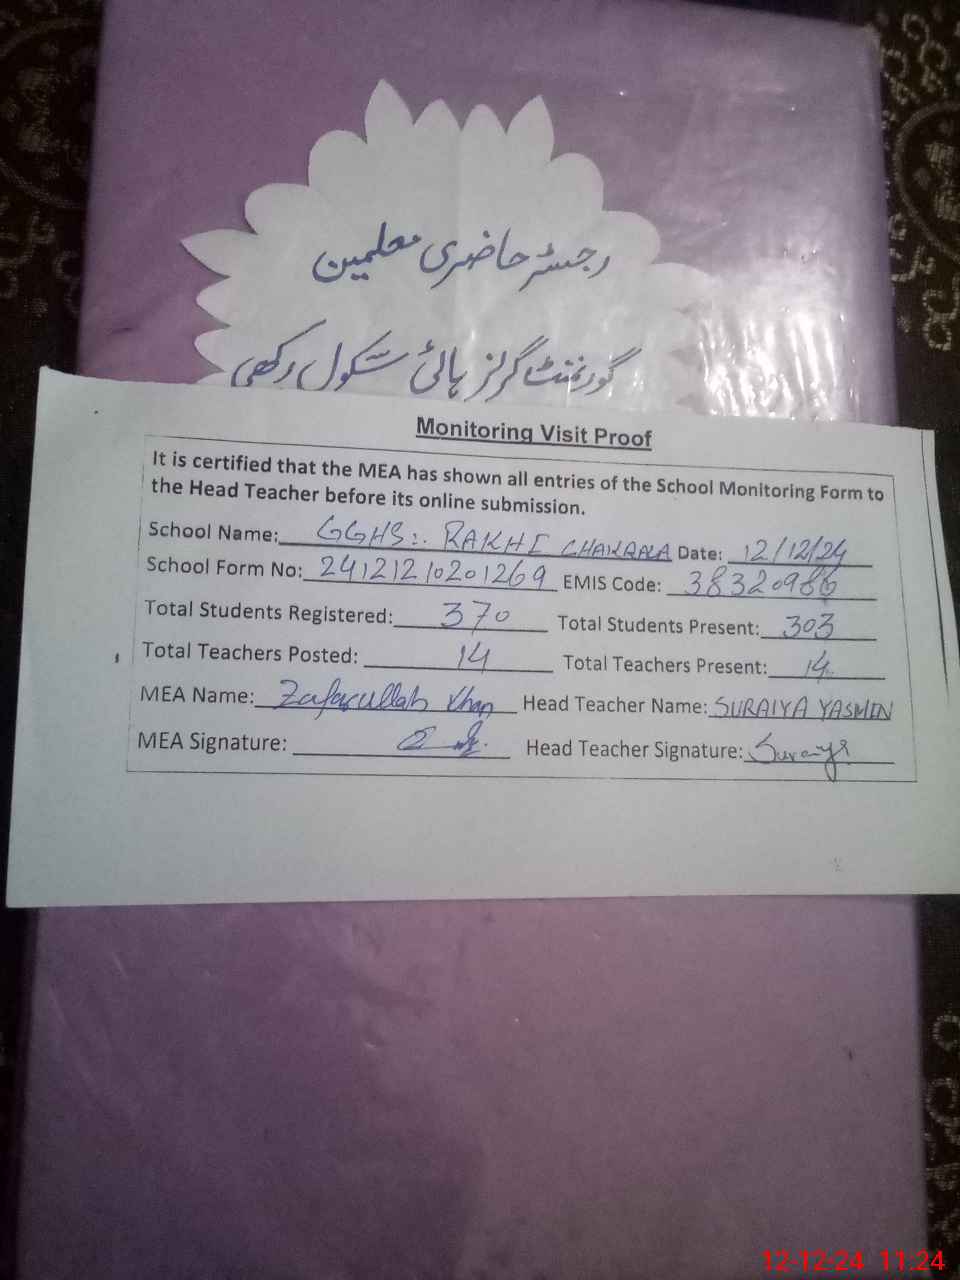 رجسٹر حاضری معلمین
گورنمنٹ گرلز ہائی سکول رکھی
Monitoring Visit Proof
It is certified that the MEA has shown all entries of the School Monitoring Form to
the Head Teacher before its online submission.
School Name: GGHS:. RAKHI CHAKRALA Date: 12/12/24
School Form No: 24121210201269 EMIS Code: 38320986
Total Students Registered: 370 Total Students Present: 303
Total Teachers Posted: 14 Total Teachers Present: 14
MEA Name: Zafarullah Khan Head Teacher Name: SURAIYA YASMEN
MEA Signature: Head Teacher Signature: Suraiya
12-12-24 11:24